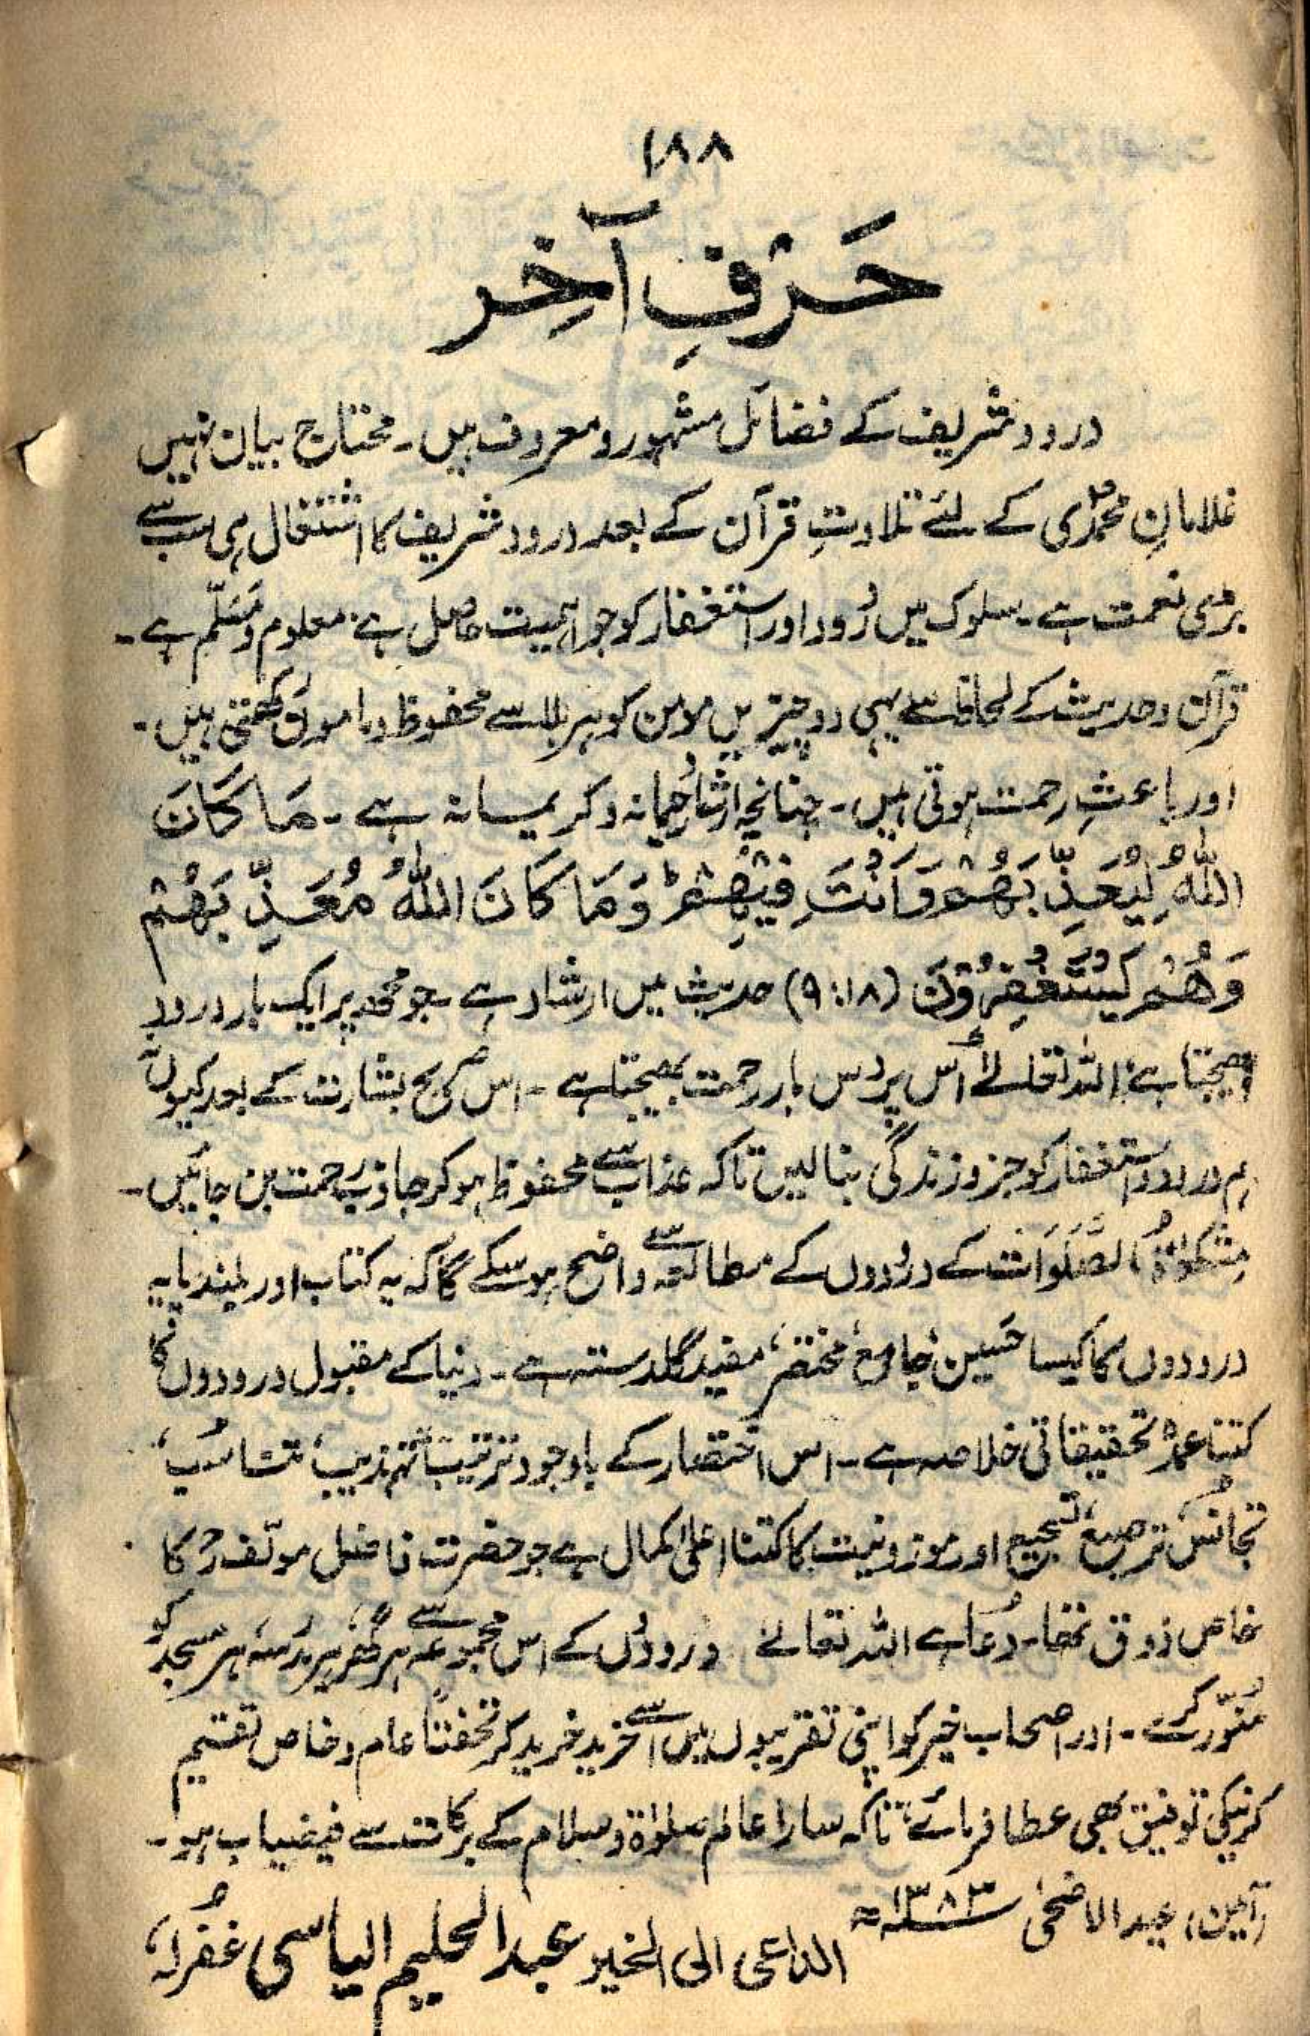 ۱۸۸
حَرْفِ آخِر
درود شریف کے فضائل مشہور و معروف ہیں۔ محتاج بیان نہیں
غلامانِ محمدؐی کے لئے تلاوتِ قرآن کے بعد درود شریف کا اشتغال ہی سب سے
بڑی نعمت ہے۔ سلوک میں دُرود اور استغفار کو جو اہمیت حاصل ہے، معلوم و مُسَلّم ہے۔
قرآن و حدیث کے لحاظ سے یہی دو چیزیں مومن کو ہر بلا سے محفوظ و مامون رکھتی ہیں۔
اور باعثِ رحمت ہوتی ہیں۔ چنانچہ ارشاد رحیمانہ و کریمانہ ہے۔ مَا كَانَ
اللهُ لِيُعَذِّبَهُمْ وَاَنْتَ فِيْهِمْ ط وَمَا كَانَ اللهُ مُعَذِّبَهُمْ
وَهُمْ يَسْتَغْفِرُوْنَ (۹:۱۸) حدیث میں ارشاد ہے جو مجھ پر ایک بار درود
بھیجتا ہے، اللہ تعالےٰ اُس پر دس بار رحمت بھیجتا ہے۔ اس صریح بشارت کے بعد کیوں نہ
ہم درود و استغفار کو جزو زندگی بنا لیں تاکہ عذاب سے محفوظ ہو کر جاذبِ رحمت بن جائیں۔
مِشْکوٰۃُ الصَّلَوَات کے درودوں کے مطالعہ سے واضح ہو سکے گا کہ یہ کتاب اور بلند پایہ
درودوں کا کیسا حَسین، جامع، مختصر، مفید گلدستہ ہے۔ دنیا کے مقبول درودوں کا
کتنا عمدہ تحقیقاتی خلاصہ ہے۔ اس اختصار کے باوجود ترتیب، تہذیب، تناسُب،
تجانُس، ترصیع، تسجیع اور موزونیت کا کتنا اعلیٰ کمال ہے جو حضرت فاضل مولّفؒ کا
خاص ذوق تھا۔ دُعا ہے اللہ تعالےٰ درودوں کے اس مجموعہ سے ہر گھر، ہر مدرسہ، ہر مسجد کو
مُنوّر کرے۔ اور اصحاب خیر کو اپنی تقریبوں میں اسے خرید خرید کر تحفتاً عام و خاص تقسیم
کرنیکی توفیق بھی عطا فرمائے، تاکہ سارا عالم صلوٰۃ و سلام کے برکات سے فیضیاب ہو۔
(آمین) عید الاضحیٰ ۱۳۸۳ھ
الداعی الی الخیر عبدالحلیم الیاسی غُفرلہٗ